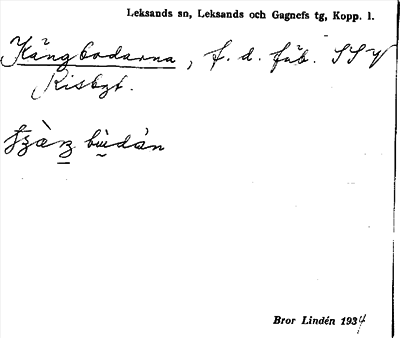 Leksands sn, Leksands och Gagnefs tg, Kopp. l.
Kångbodarna, f. d. fäb. SSV
Risbyt.
bùdán
Bror Lindén 1934